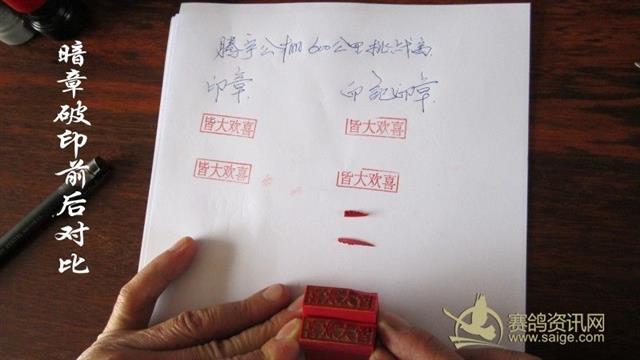 暗章破印前后对比
腾宇公棚600公里挑战赛
印章
印記印章
皆大欢喜
皆大欢喜
皆大欢喜
皆大欢喜
赛鸽资讯网
www.saige.com